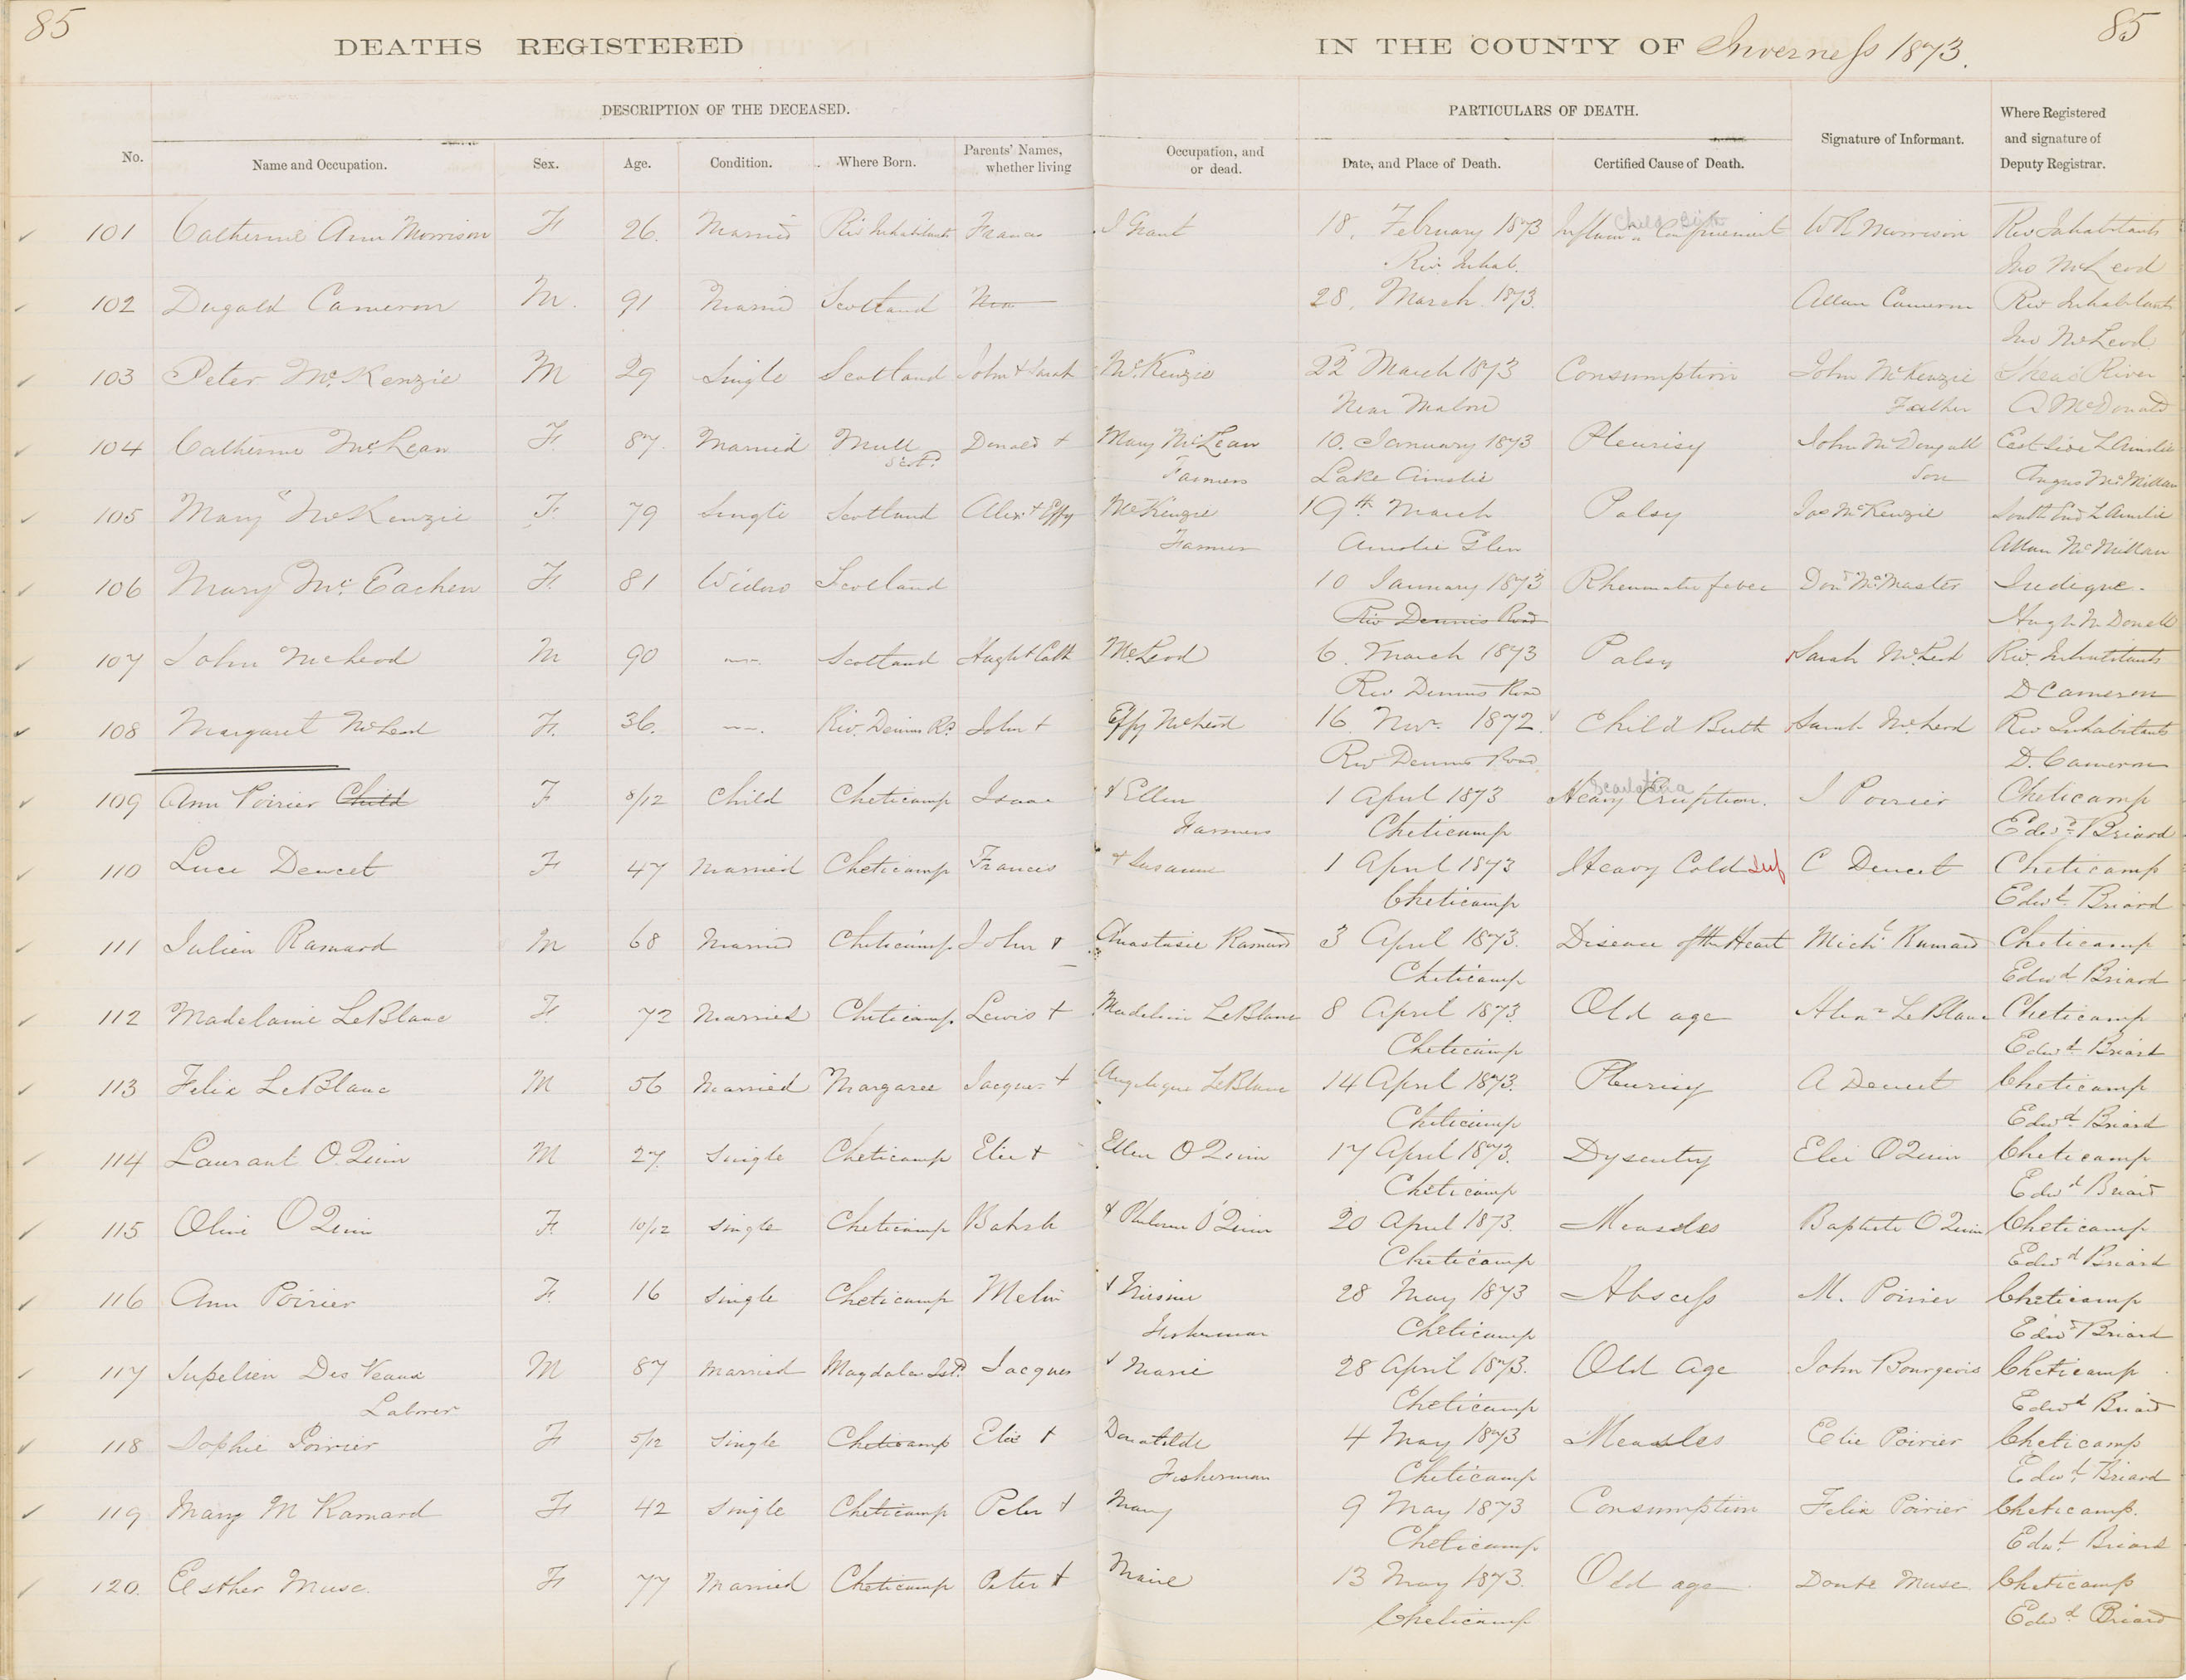 85
85
DEATHS REGISTERED IN THE COUNTY OF Inverness 1873.
DESCRIPTION OF THE DECEASED. PARTICULARS OF DEATH.
No. Name and Occupation. Sex. Age. Condition. Where Born. Parents' Names, whether living Occupation, and or dead. Date, and Place of Death. Certified Cause of Death. Signature of Informant. Where Registered and signature of Deputy Registrar.
101 Catherine Ann Morrison F 26. Married Riv Inhabitants Francis J Grant 18, February 1873 Inflam n Confinement Child birth W R Morrison Riv Inhabitants
Riv. Inhab. Jno McLeod
102 Dugald Cameron M. 91 Married Scotland 28, March 1873. Allan Cameron Riv Inhabitants
Jno McLeod
103 Peter McKenzie M 29 Single Scotland John & Sarah McKenzie 22 March 1873 Consumption John McKenzie River
Near Mabou Father A McDonald
104 Catherine McLean F. 87. Married Mull Donald & Mary McLean 10. January 1873 Pleurisy John McDougall East Side L Ainslie
Scotd. Farmers Lake Ainslie Son Angus McMillan
105 Mary McKenzie F. 79 Single Scotland Alexr & Effy McKenzie 19th March Palsy Jas McKenzie South End L Ainslie
Farmer Ainslie Glen Allan McMillan
106 Mary McEachen F. 81 Widow Scotland 10 January 1873 Rheumatic fever Dond McMaster Judique.
Riv Dennis Road Hugh McDonell
107 John McLeod M 90 — Scotland Hugh & Cath McLeod 6. March 1873 Palsy Sarah McLeod Riv. Inhabitants
Riv Dennis Road D Cameron
108 Margaret McLeod F. 36. — Riv. Dennis Rd. John & Effy McLeod 16 Novr. 1872. Child Birth Sarah McLeod Riv Inhabitants
Riv Dennis Road D. Cameron
109 Ann Poirier Child F 8/12 Child Cheticamp Isaac & Ellen 1 April 1873 Heavy Eruption. Scarlatina I Poirier Cheticamp
Farmers Cheticamp Edwd. Briard
110 Luce Deucet F 47 Married Cheticamp Francis & Susanne 1 April 1873 Heavy Cold C Deucet Cheticamp
Cheticamp Edwd. Briard
111 Julien Ramard M 68 Married Cheticamp John & Anastasie Ramard 3 April 1873. Disease of the Heart Michl Ramard Cheticamp
Cheticamp Edwd Briard
112 Madelaine LeBlanc F. 72 Married Cheticamp. Lewis & Madeline LeBlanc 8 April 1873. Old age LeBlanc Cheticamp
Cheticamp Edwd Briard
113 Felix LeBlanc M 56 Married Margaree Jacques & Angelique LeBlanc 14 April 1873. Pleurisy A Deucet Cheticamp
Cheticamp Edwd Briard
114 Laurant O Quin M 27. Single Cheticamp Elie & Ellen O Quin 17 April 1873. Dysentry Elie O Quin Cheticamp
Cheticamp Edwd Briard
115 Olive O Quin F. 10/12 Single Cheticamp & O'Quin 20 April 1873. Measles Baptiste O Quin Cheticamp
Cheticamp Edwd Briard
116 Ann Poirier F. 16 Single Cheticamp 28 May 1873 Abscess M. Poirier Cheticamp
Fisherman Cheticamp Edwd Briard
117 Des Veaux M 87 Married Magdalen Isd. Jacques & Marie 28 April 1873. Old Age John Bourgeois Cheticamp
Laborer Cheticamp Edwd Briard
118 Sophie Poirier F 5/12 Single Cheticamp Elie & Donatilde 4 May 1873 Measles Elie Poirier Cheticamp
Fisherman Cheticamp Edwd. Briard
119 Mary M Ramard F 42 Single Cheticamp Peter & Mary 9 May 1873 Consumption Felix Poirier Cheticamp.
Cheticamp Edwd. Briard
120. Eesther Muse. F 77 Married Cheticamp Peter & Marie 13 May 1873. Old age Muse Cheticamp
Cheticamp Edwd. Briard